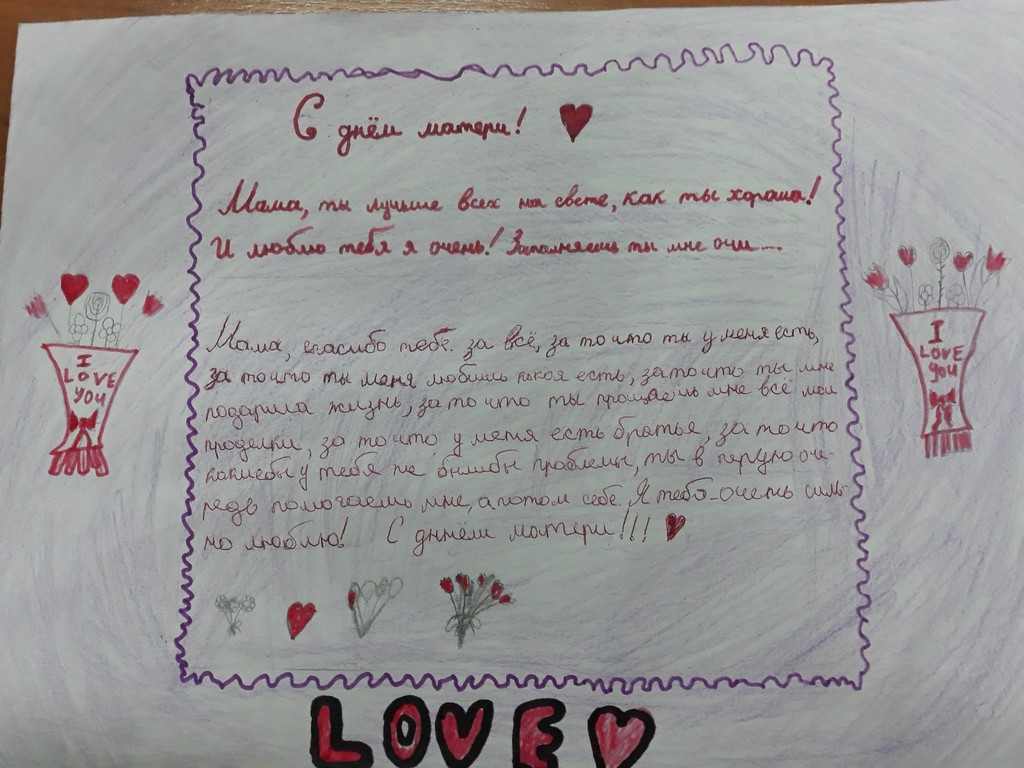 С днём матери!
Мама, ты лучше всех на свете, как ты хороша!
И люблю тебя я очень! Заполняешь ты мне очи....
I
LOVE
YOU
I
LOVE
YOU
Мама, спасибо тебе за всё, за то что ты у меня есть,
за то что ты меня любишь какоя есть, за то что ты мне
подарила жизнь, за то что ты прощаешь мне всё мои
проделки, за то что у меня есть братья, за то что
какиебы у тебя не былибы проблемы, ты в первую оче-
редь помогаешь мне, а потом себе. Я тебя очень силь-
но люблю! С дннём матери!!!
LOVE